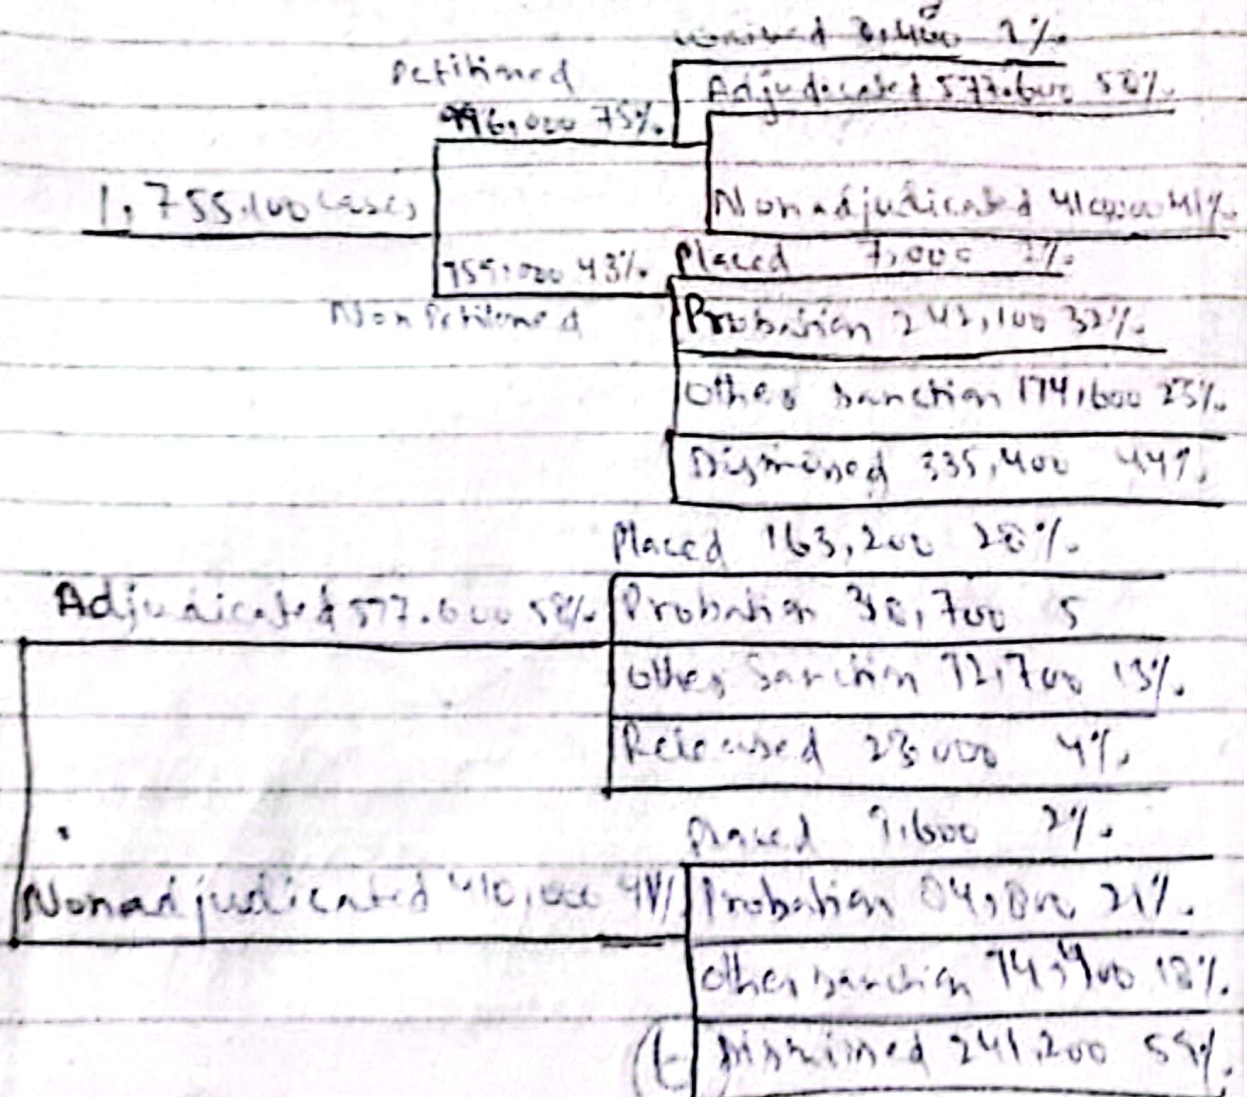 Waived 8,400 1%.
Petitioned
Adjudicated 577.600 58%.
996,000 75%.
1,755,100 cases
Nonadjudicated 410,000 41%.
Placed 7,000 1%.
759,000 43%.
Nonpetitioned
Probation 242,100 32%.
Other sanction 174,600 23%.
Dismissed 335,400 44%.
Placed 163,200 28%.
Adjudicated 577.600 58%.
Probation 318,700 5
Other sanction 72,700 13%.
Released 23,000 4%.
Placed 9,600 2%.
Nonadjudicated 410,000 41%
Probation 84,800 21%.
Other sanction 74,400 18%.
Dismissed 241,200 59%.